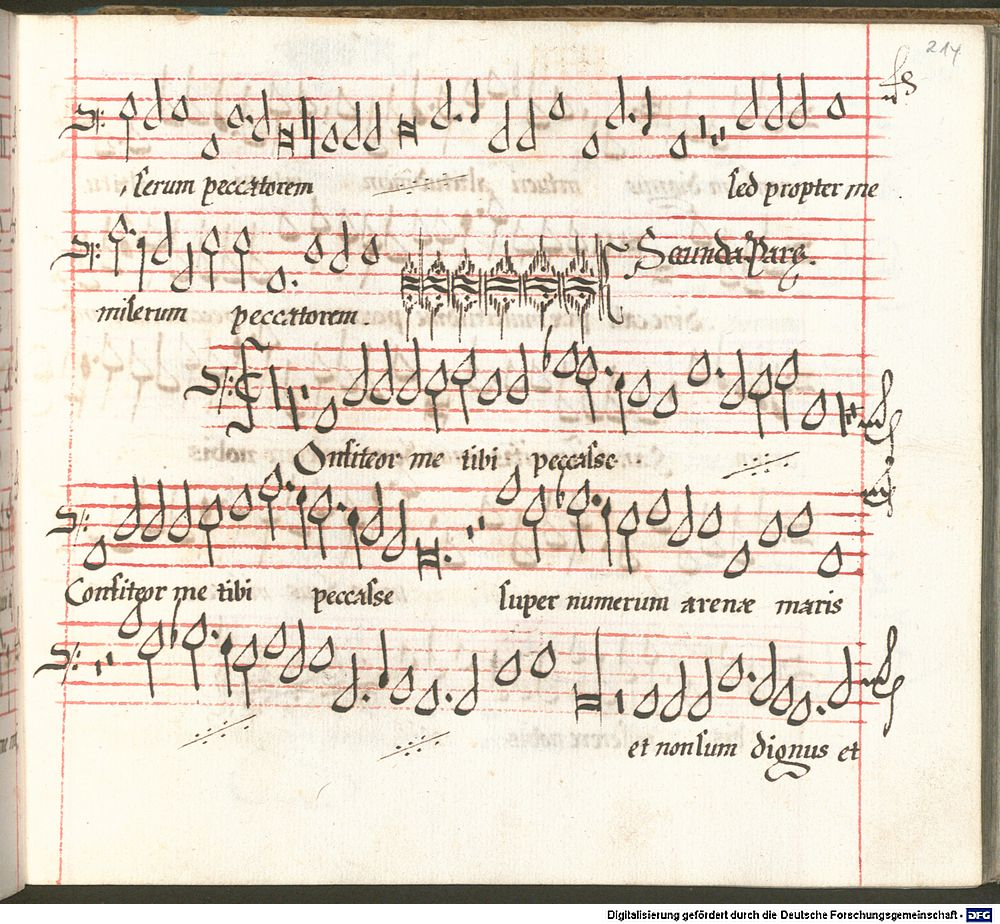 217
serum peccatorem sed propter me
miserum peccatorem. Secunda Pars.
Onfiteor me tibi peccasse
Confiteor me tibi peccasse super numerum arenæ maris
et non sum dignus et
Digitalisierung gefördert durch die Deutsche Forschungsgemeinschaft - DFG